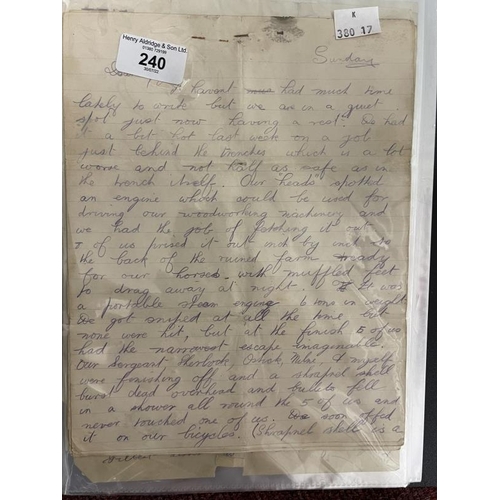 Henry Aldridge & Son Ltd
240
K
380 17
Sunday
I havant had much time
lately to write but we are in a quiet
spot just now having a rest. We had
it a bit hot last week on a job
just behind the trenches which is a lot
worse and not half as safe as in
the trench itself. Our heads spotted
an engine which could be used for
driving our woodworking machinery and
we had the job of fetching it out
of us prised it out inch by inch to
the back of the ruined farm ready
for our horses with muffled feet
to drag away at night. It was
a portable steam engine 6 tons in weight
We got sniped at all the time, but
none were hit, but at the finish 5 of us
had the narrowest escape imaginable.
Our Sergeant, Sherlock, Milne & myself
were finishing off, and a shrapnel shell
burst dead overhead and bullets fell
in a shower all round the 5 of us and
never touched one of us. We soon offed
it on our bicycles. (Shrapnel shell is a